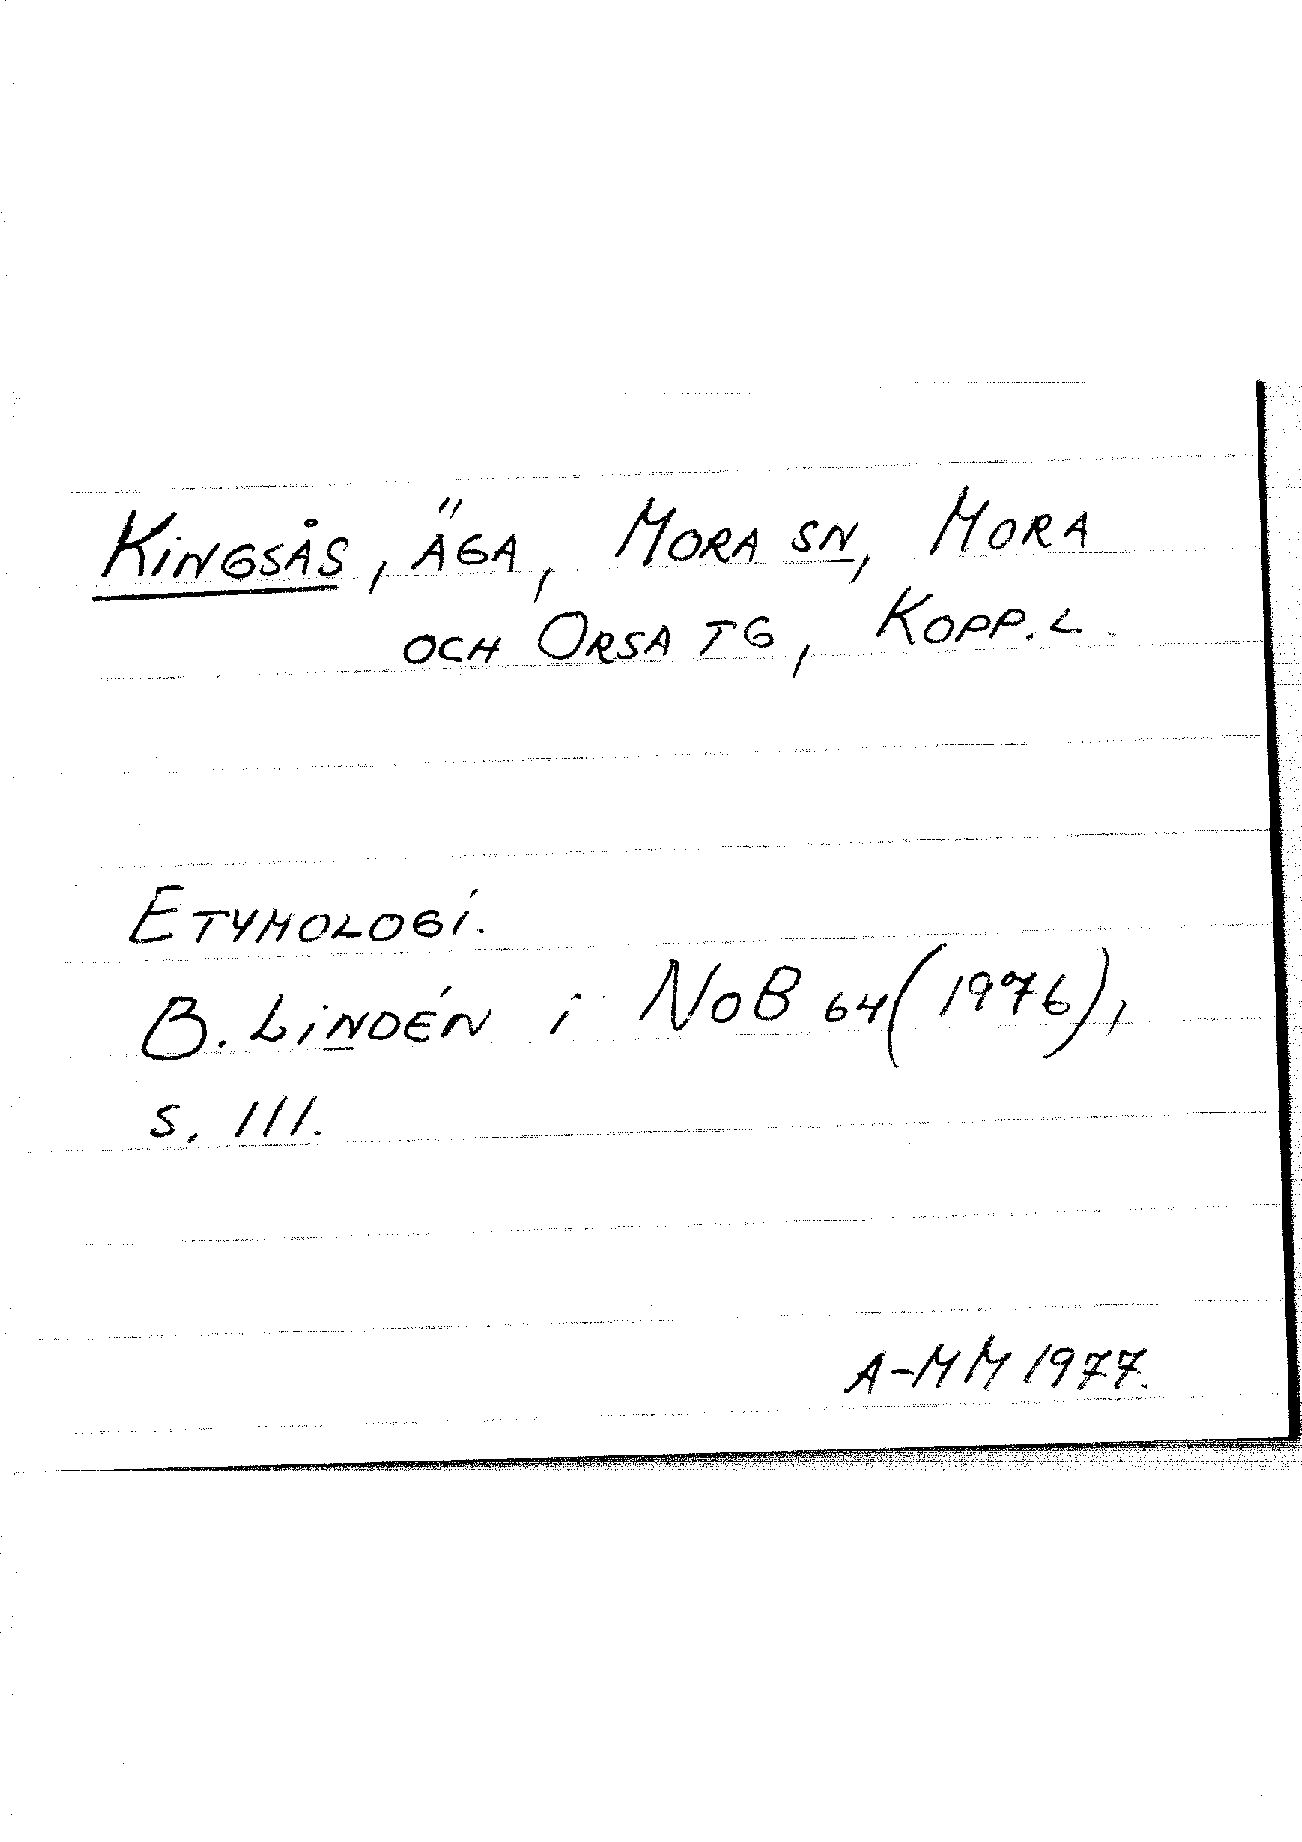 KINGSÅS, ÄGA, MORA SN, MORA
OCH ORSA TG, KOPP. L.
ETYMOLOGI.
B. LINDÉN i NoB 64 (1976),
S. 111.
A-MM 1977.